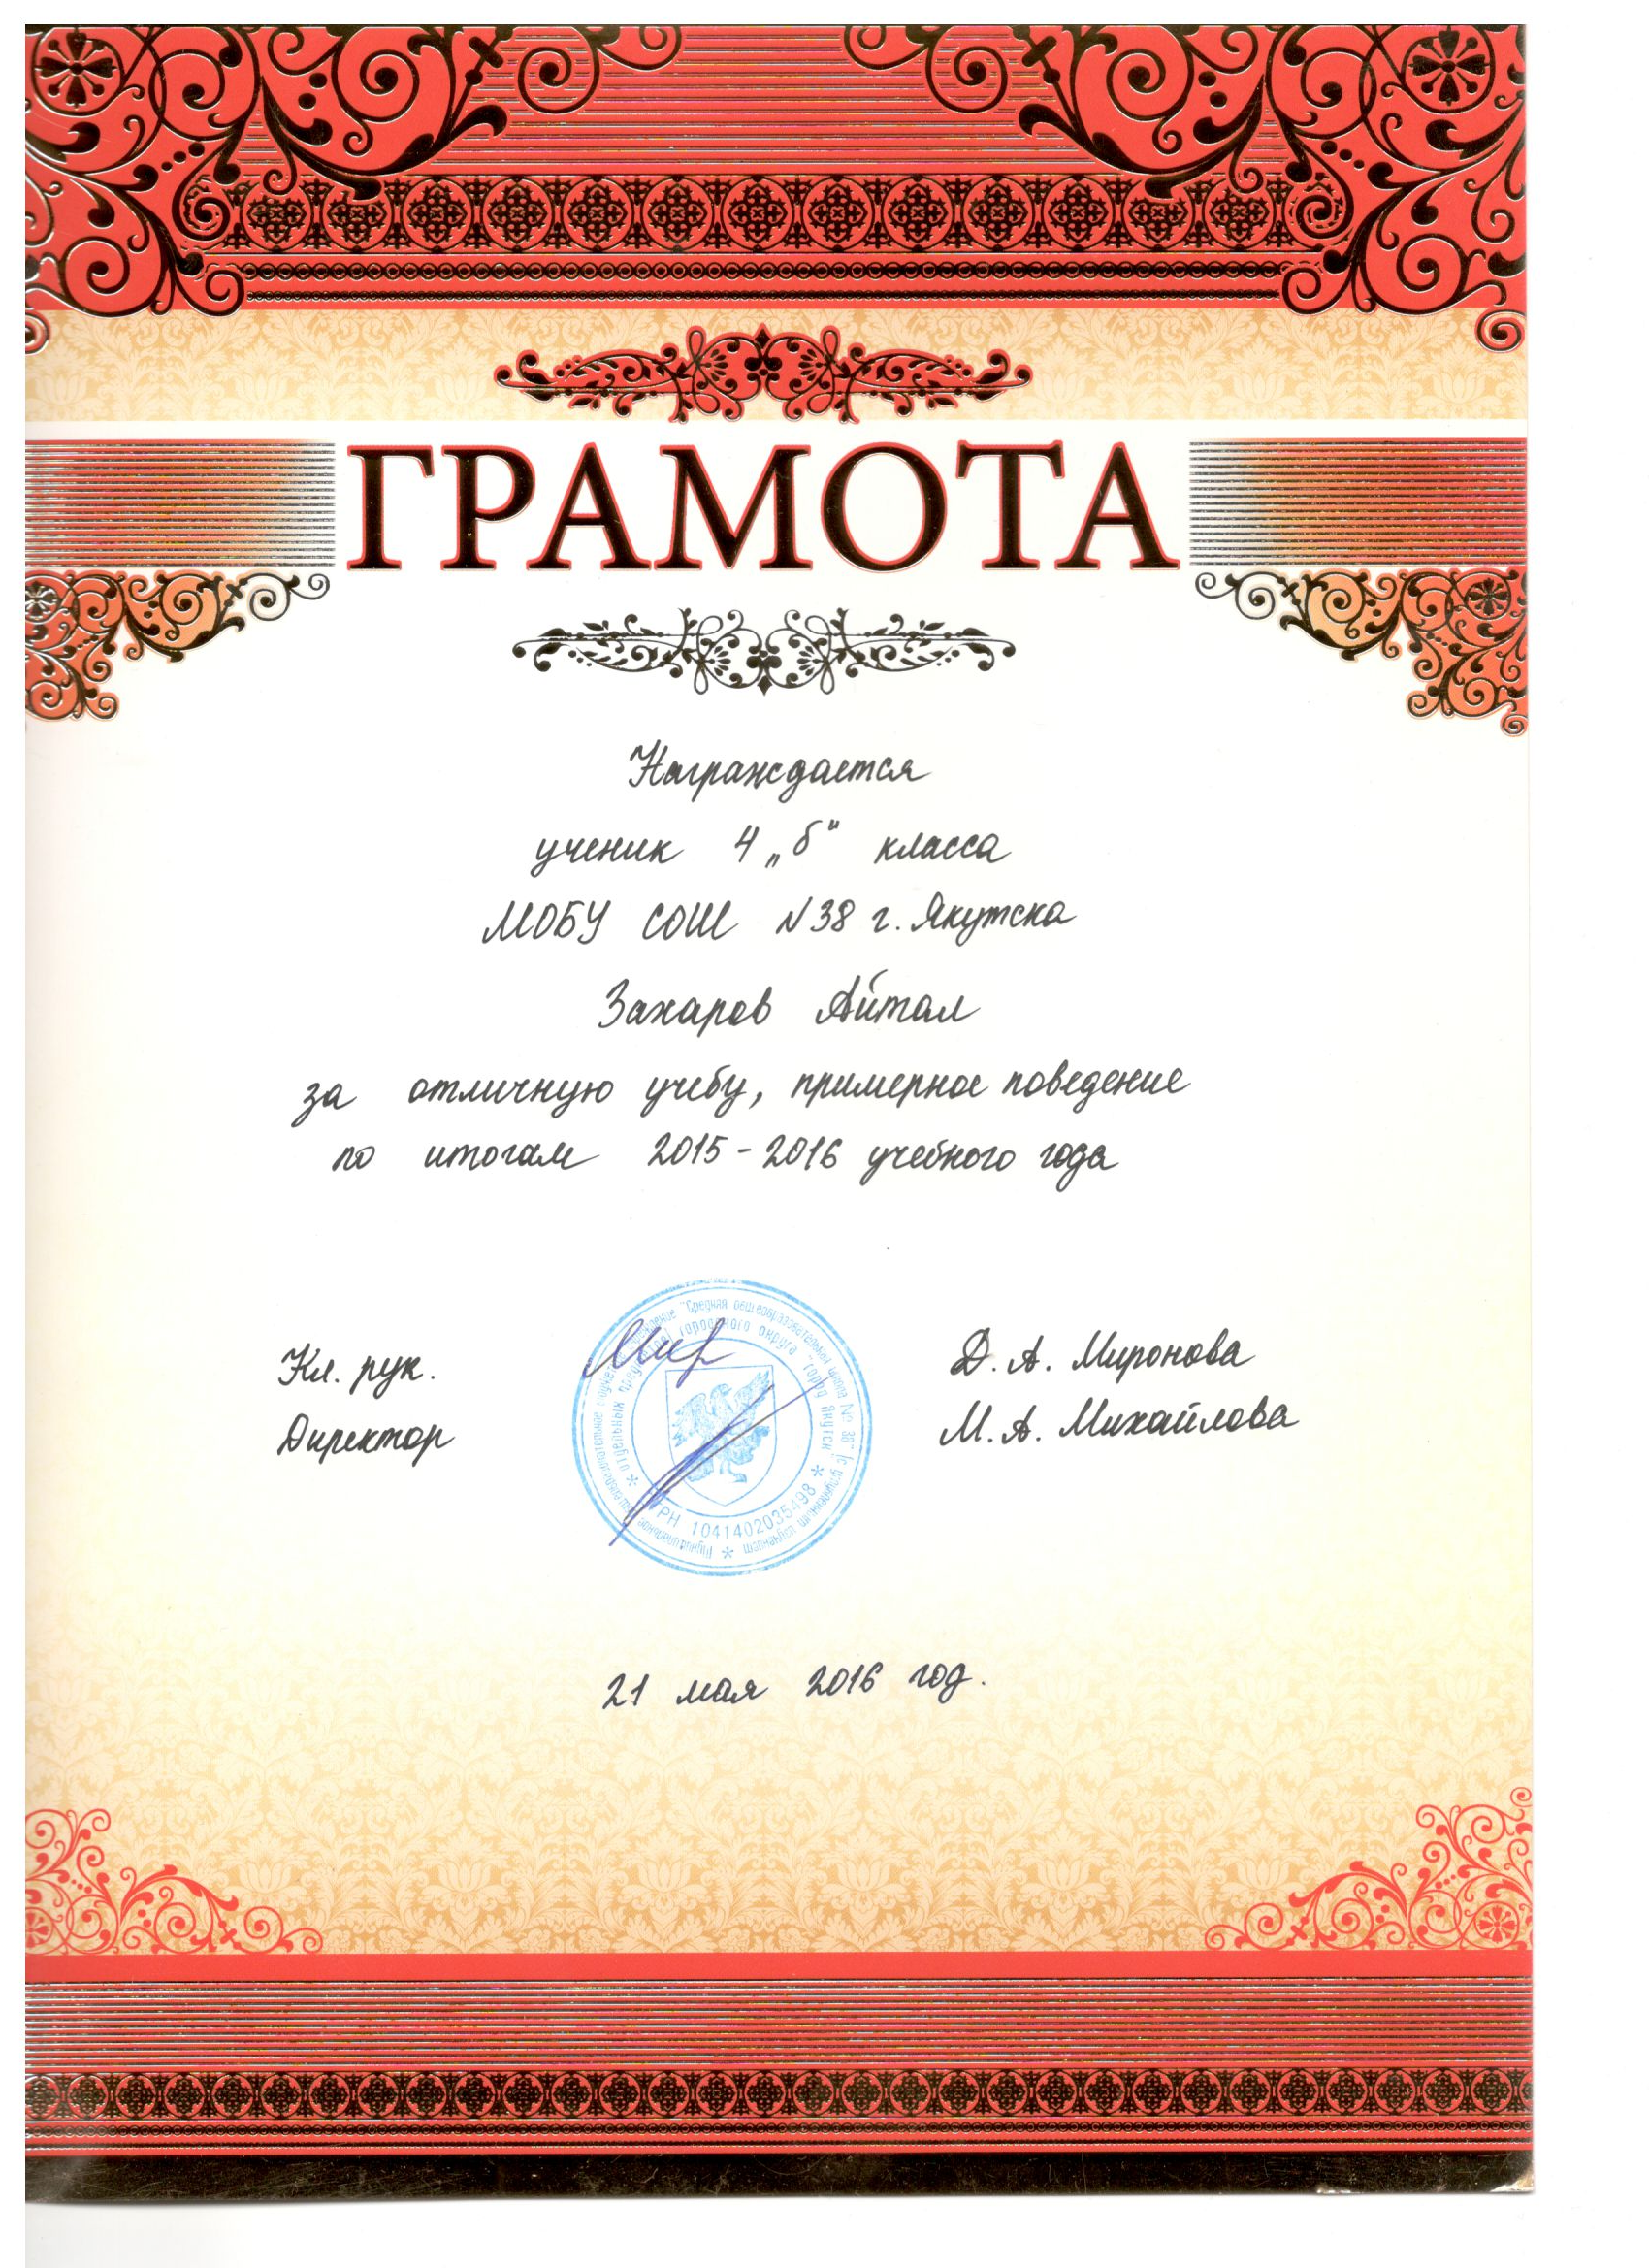 ГРАМОТА
Награждается
ученик 4 „б“ класса
МОБУ СОШ N38 г. Якутска
Захаров Айтал
за отличную учебу, примерное поведение
по итогам 2015-2016 учебного года
Кл. рук. Мир Д. А. Миронова
Директор М. А. Михайлова
"Средняя общеобразовательная школа № 38" (с углубленным изучением
отдельных предметов) городского округа "город Якутск"
ОГРН 1041402035498
21 мая 2016 год.